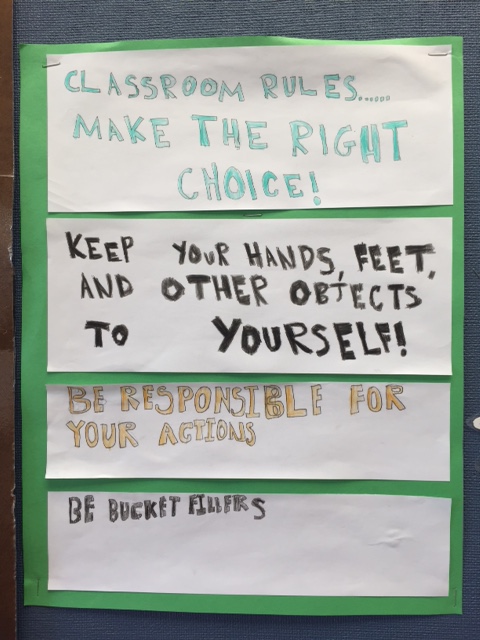 CLASSROOM RULES......
MAKE THE RIGHT
CHOICE!
KEEP YOUR HANDS, FEET,
AND OTHER OBJECTS
TO YOURSELF!
BE RESPONSIBLE FOR
YOUR ACTIONS
BE BUCKET FILLERS